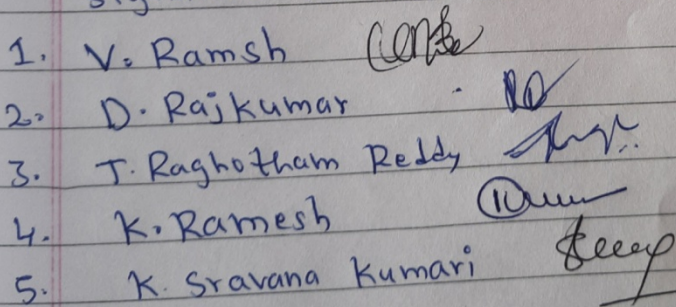 1. V. Ramsh
2. D. Rajkumar
3. T. Raghotham Reddy
4. K. Ramesh
5. K. Sravana Kumari